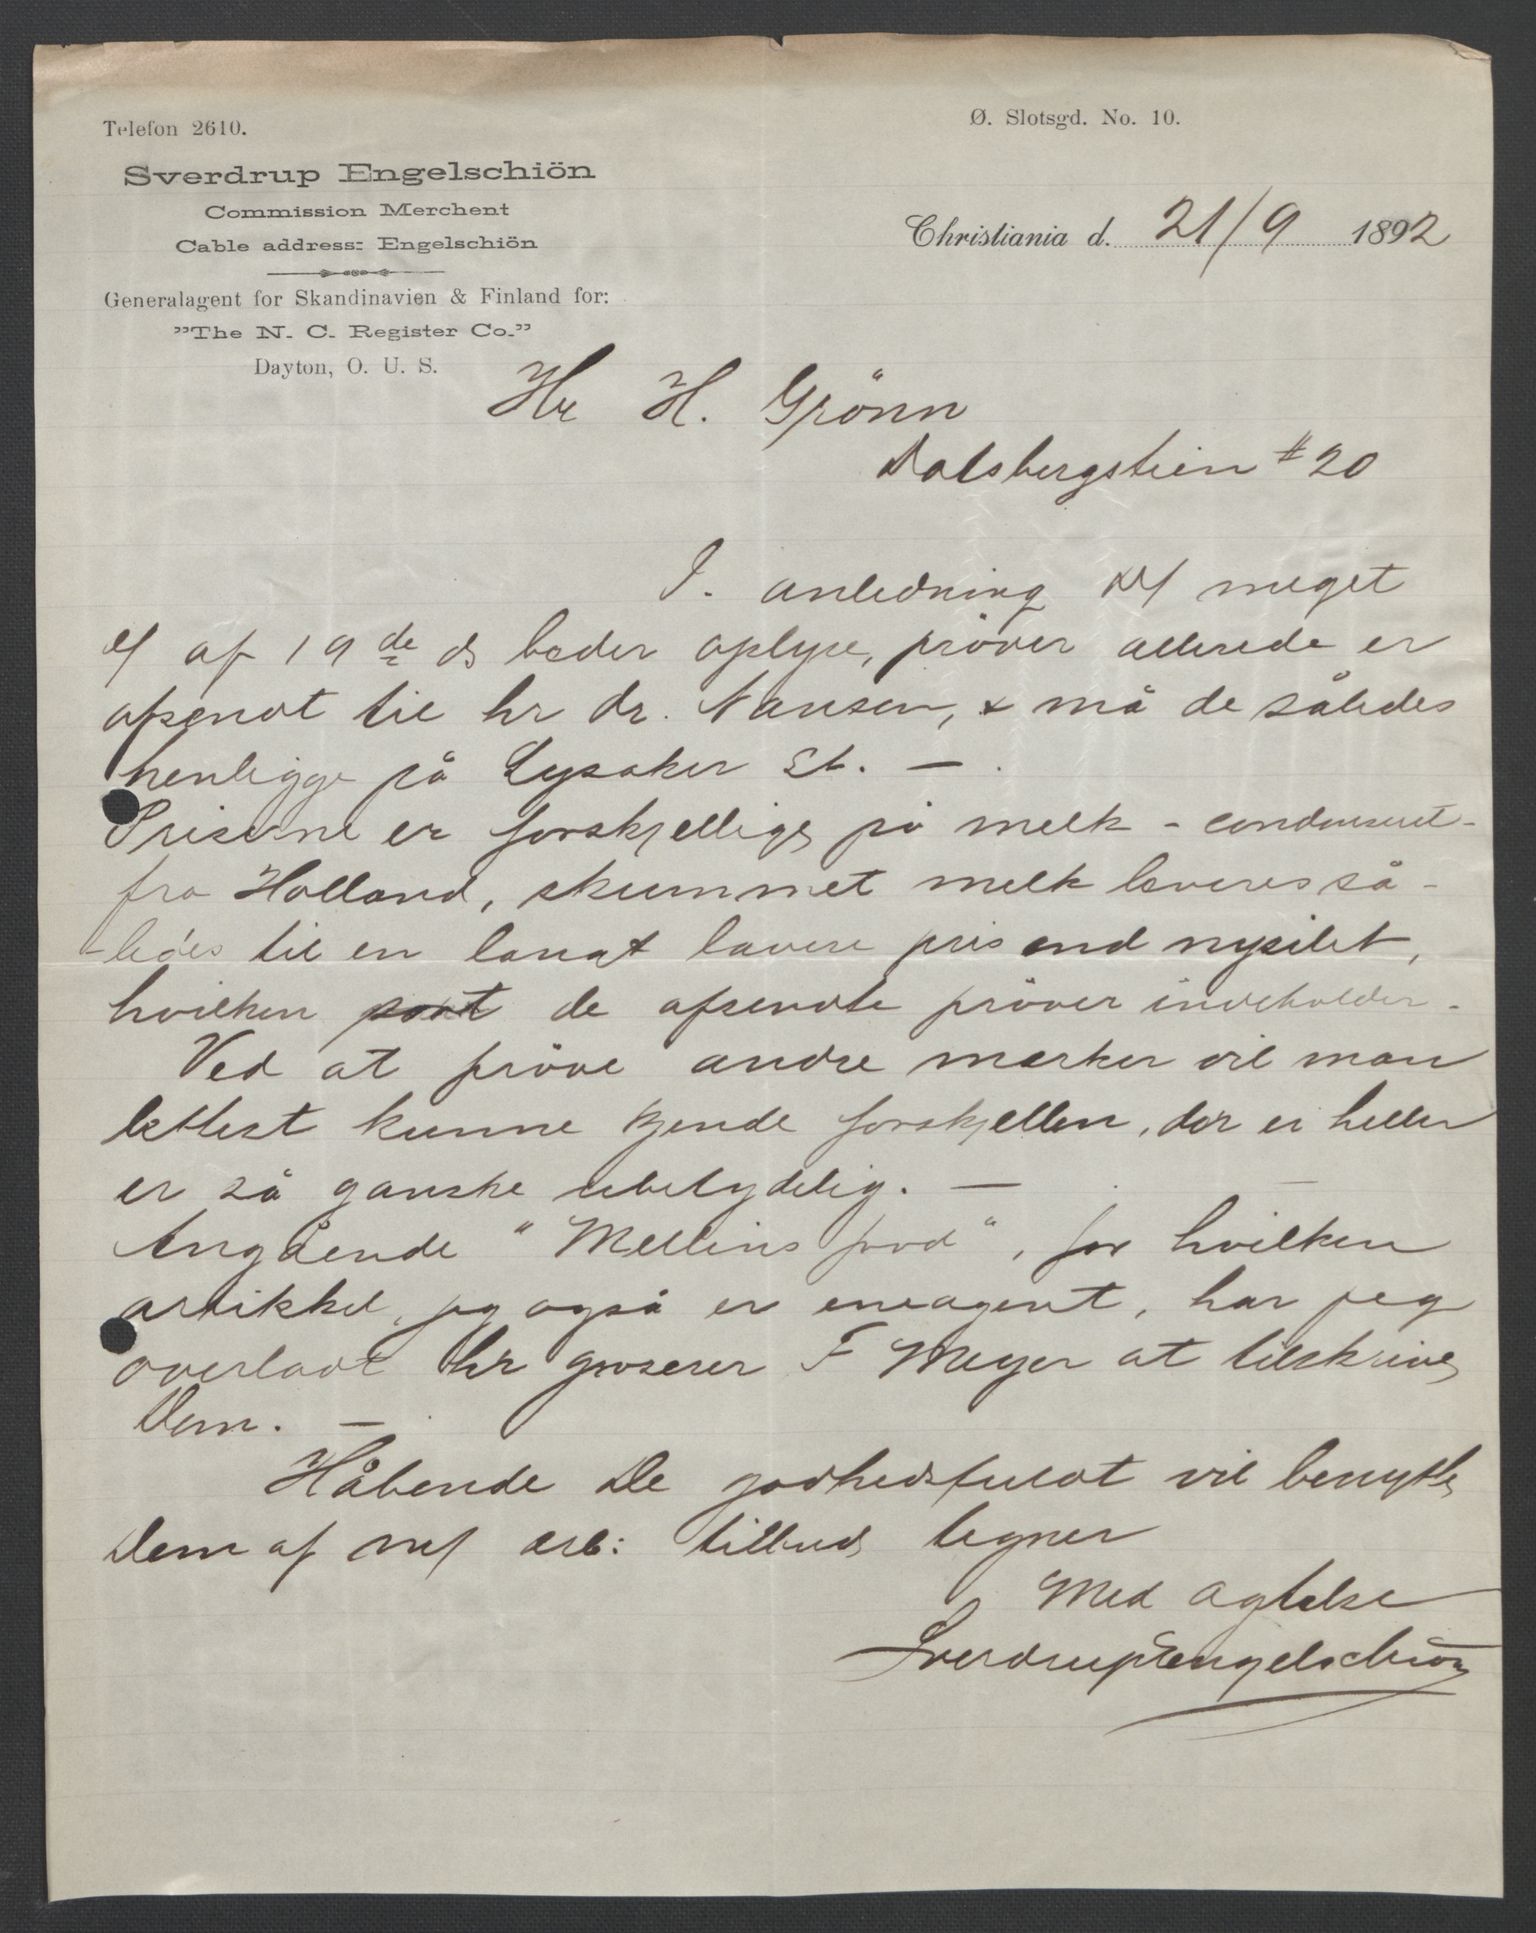 Telefon 2610.
Ø. Slotsgd. No. 10.
Sverdrup Engelschiön
Commission Merchent
Cable address: Engelschiön
Christiania d. 21/9 1892
Generalagent for Skandinavien & Finland for:
"The N. C. Register Co."
Dayton, O. U. S.
Hr H. Grönn
Dalsbergstien # 20
I. anledning D/ meget
e/ af 19 de ds beder oplyse, pröver allerede er
afsendt til hr dr. Nansen, & må de således
henligge på Lysaker St. —
Priserne er forskjellige på melk - condenseret -
fra Holland, skummet melk leveres så-
-ledes til en langt lavere pris end nysilet,
hvilken sort de afsendte pröver indeholder.
Ved at pröve andre mærker vil man
lettest kunne kjende forskjellen, der ei heller
er så ganske ubetydelig. —
Angående "Mellins food", for hvilken
artikkel jeg også er eneagent, har jeg
overladt hr groserer F Meyer at tilskrive
Dem. —
Håbende De godhedsfuldt vil benytte
Dem af m/ ærb: tilbud tegner
Med agtelse
Sverdrup Engelschiön